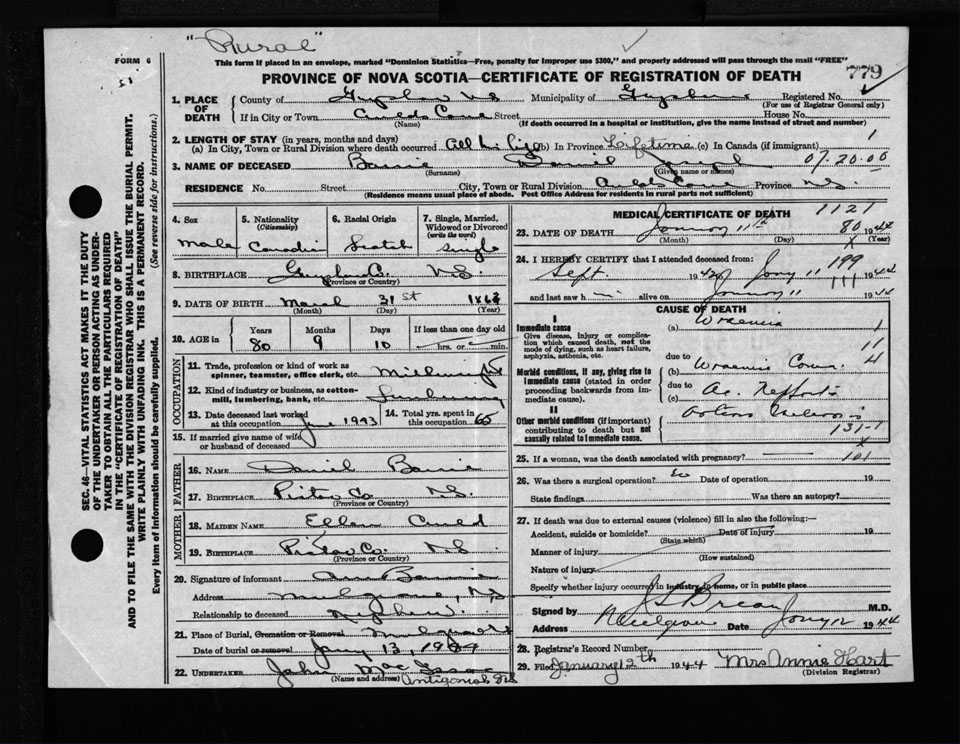 "Rural"
FORM 6
This form if placed in an envelope, marked "Dominion Statistics—Free, penalty for improper use $300," and properly addressed will pass through the mail "FREE"
PROVINCE OF NOVA SCOTIA—CERTIFICATE OF REGISTRATION OF DEATH
779
SEC. 46—VITAL STATISTICS ACT MAKES IT THE DUTY
OF THE UNDERTAKER OR PERSON ACTING AS UNDER-
TAKER TO OBTAIN ALL THE PARTICULARS REQUIRED
IN THE "CERTIFICATE OF REGISTRATION OF DEATH"
AND TO FILE THE SAME WITH THE DIVISION REGISTRAR WHO SHALL ISSUE THE BURIAL PERMIT.
WRITE PLAINLY WITH UNFADING INK. THIS IS A PERMANENT RECORD.
Every item of information should be carefully supplied. (See reverse side for instructions.)
1. PLACE OF DEATH County of Guysboro NS Municipality of Guysboro Registered No.
(For use of Registrar General only)
If in City or Town Aulds Cove Street House No.
(Name) (If death occurred in a hospital or institution, give the name instead of street and number)
2. LENGTH OF STAY (in years, months and days)
(a) In City, Town or Rural Division where death occurred All his life (b) In Province Lifetime (c) In Canada (if immigrant) 1
3. NAME OF DECEASED Barrie Daniel Joseph 07.20.00
(Surname) (Given name or names)
RESIDENCE No. Street City, Town or Rural Division Aulds Cove Province N.S.
(Residence means usual place of abode. Post Office Address for residents in rural parts not sufficient)
4. Sex Male
5. Nationality (Citizenship) Canadian
6. Racial Origin Scotch
7. Single, Married, Widowed or Divorced (write the word) Single
8. BIRTHPLACE Guysboro Co. N.S.
(Province or Country)
9. DATE OF BIRTH March 31st 1863
(Month) (Day) (Year)
10. AGE in Years Months Days If less than one day old
80 9 10 hrs. or min.
OCCUPATION
11. Trade, profession or kind of work as spinner, teamster, office clerk, etc.
12. Kind of industry or business, as cotton-mill, lumbering, bank, etc. Lumbering
13. Date deceased last worked at this occupation June 1943
14. Total yrs. spent in 65
15. If married give name of wife or husband of deceased
FATHER
16. NAME Daniel Barrie
17. BIRTHPLACE Pictou Co. N.S.
MOTHER
18. MAIDEN NAME Ellen Auld
19. BIRTHPLACE Pictou Co. N.S.
(Province or Country)
20. Signature of informant Barrie
Address Mulgrave, N.S.
Relationship to deceased Nephew
21. Place of Burial, Cremation or Removal Mulgrave
Date of burial or removal Jany 13, 1944
22. UNDERTAKER John Mac Isaac
(Name and address) Antigonish NS
MEDICAL CERTIFICATE OF DEATH 1121
23. DATE OF DEATH January 11th 80 1944
(Month) (Day) (Year)
24. I HEREBY CERTIFY that I attended deceased from: 199
Sept. 1942 to Jany 11 1944
and last saw him alive on January 11 1944
CAUSE OF DEATH
I
Immediate cause (a) Uraemia
Give disease, injury or complication which caused death, not the mode of dying, such as heart failure, asphyxia, asthenia, etc.
due to
Morbid conditions, if any, giving rise to immediate cause (stated in order proceeding backwards from immediate cause). (b) Uraemic Coma
due to
(c)
II
Other morbid conditions (if important) contributing to death but not causally related to immediate cause.
131-1
25. If a woman, was the death associated with pregnancy? 101
26. Was there a surgical operation? Date of operation 19
State findings Was there an autopsy?
27. If death was due to external causes (violence) fill in also the following:—
Accident, suicide or homicide? Date of injury 19
(State which)
Manner of injury
(How sustained)
Nature of injury
Specify whether injury occurred in industry, in home, or in public place
Signed by M.D.
Address Mulgrave Date Jany 12 1944
28. Registrar's Record Number
29. Filed January 12th 1944 Mrs Annie Hart
(Division Registrar)